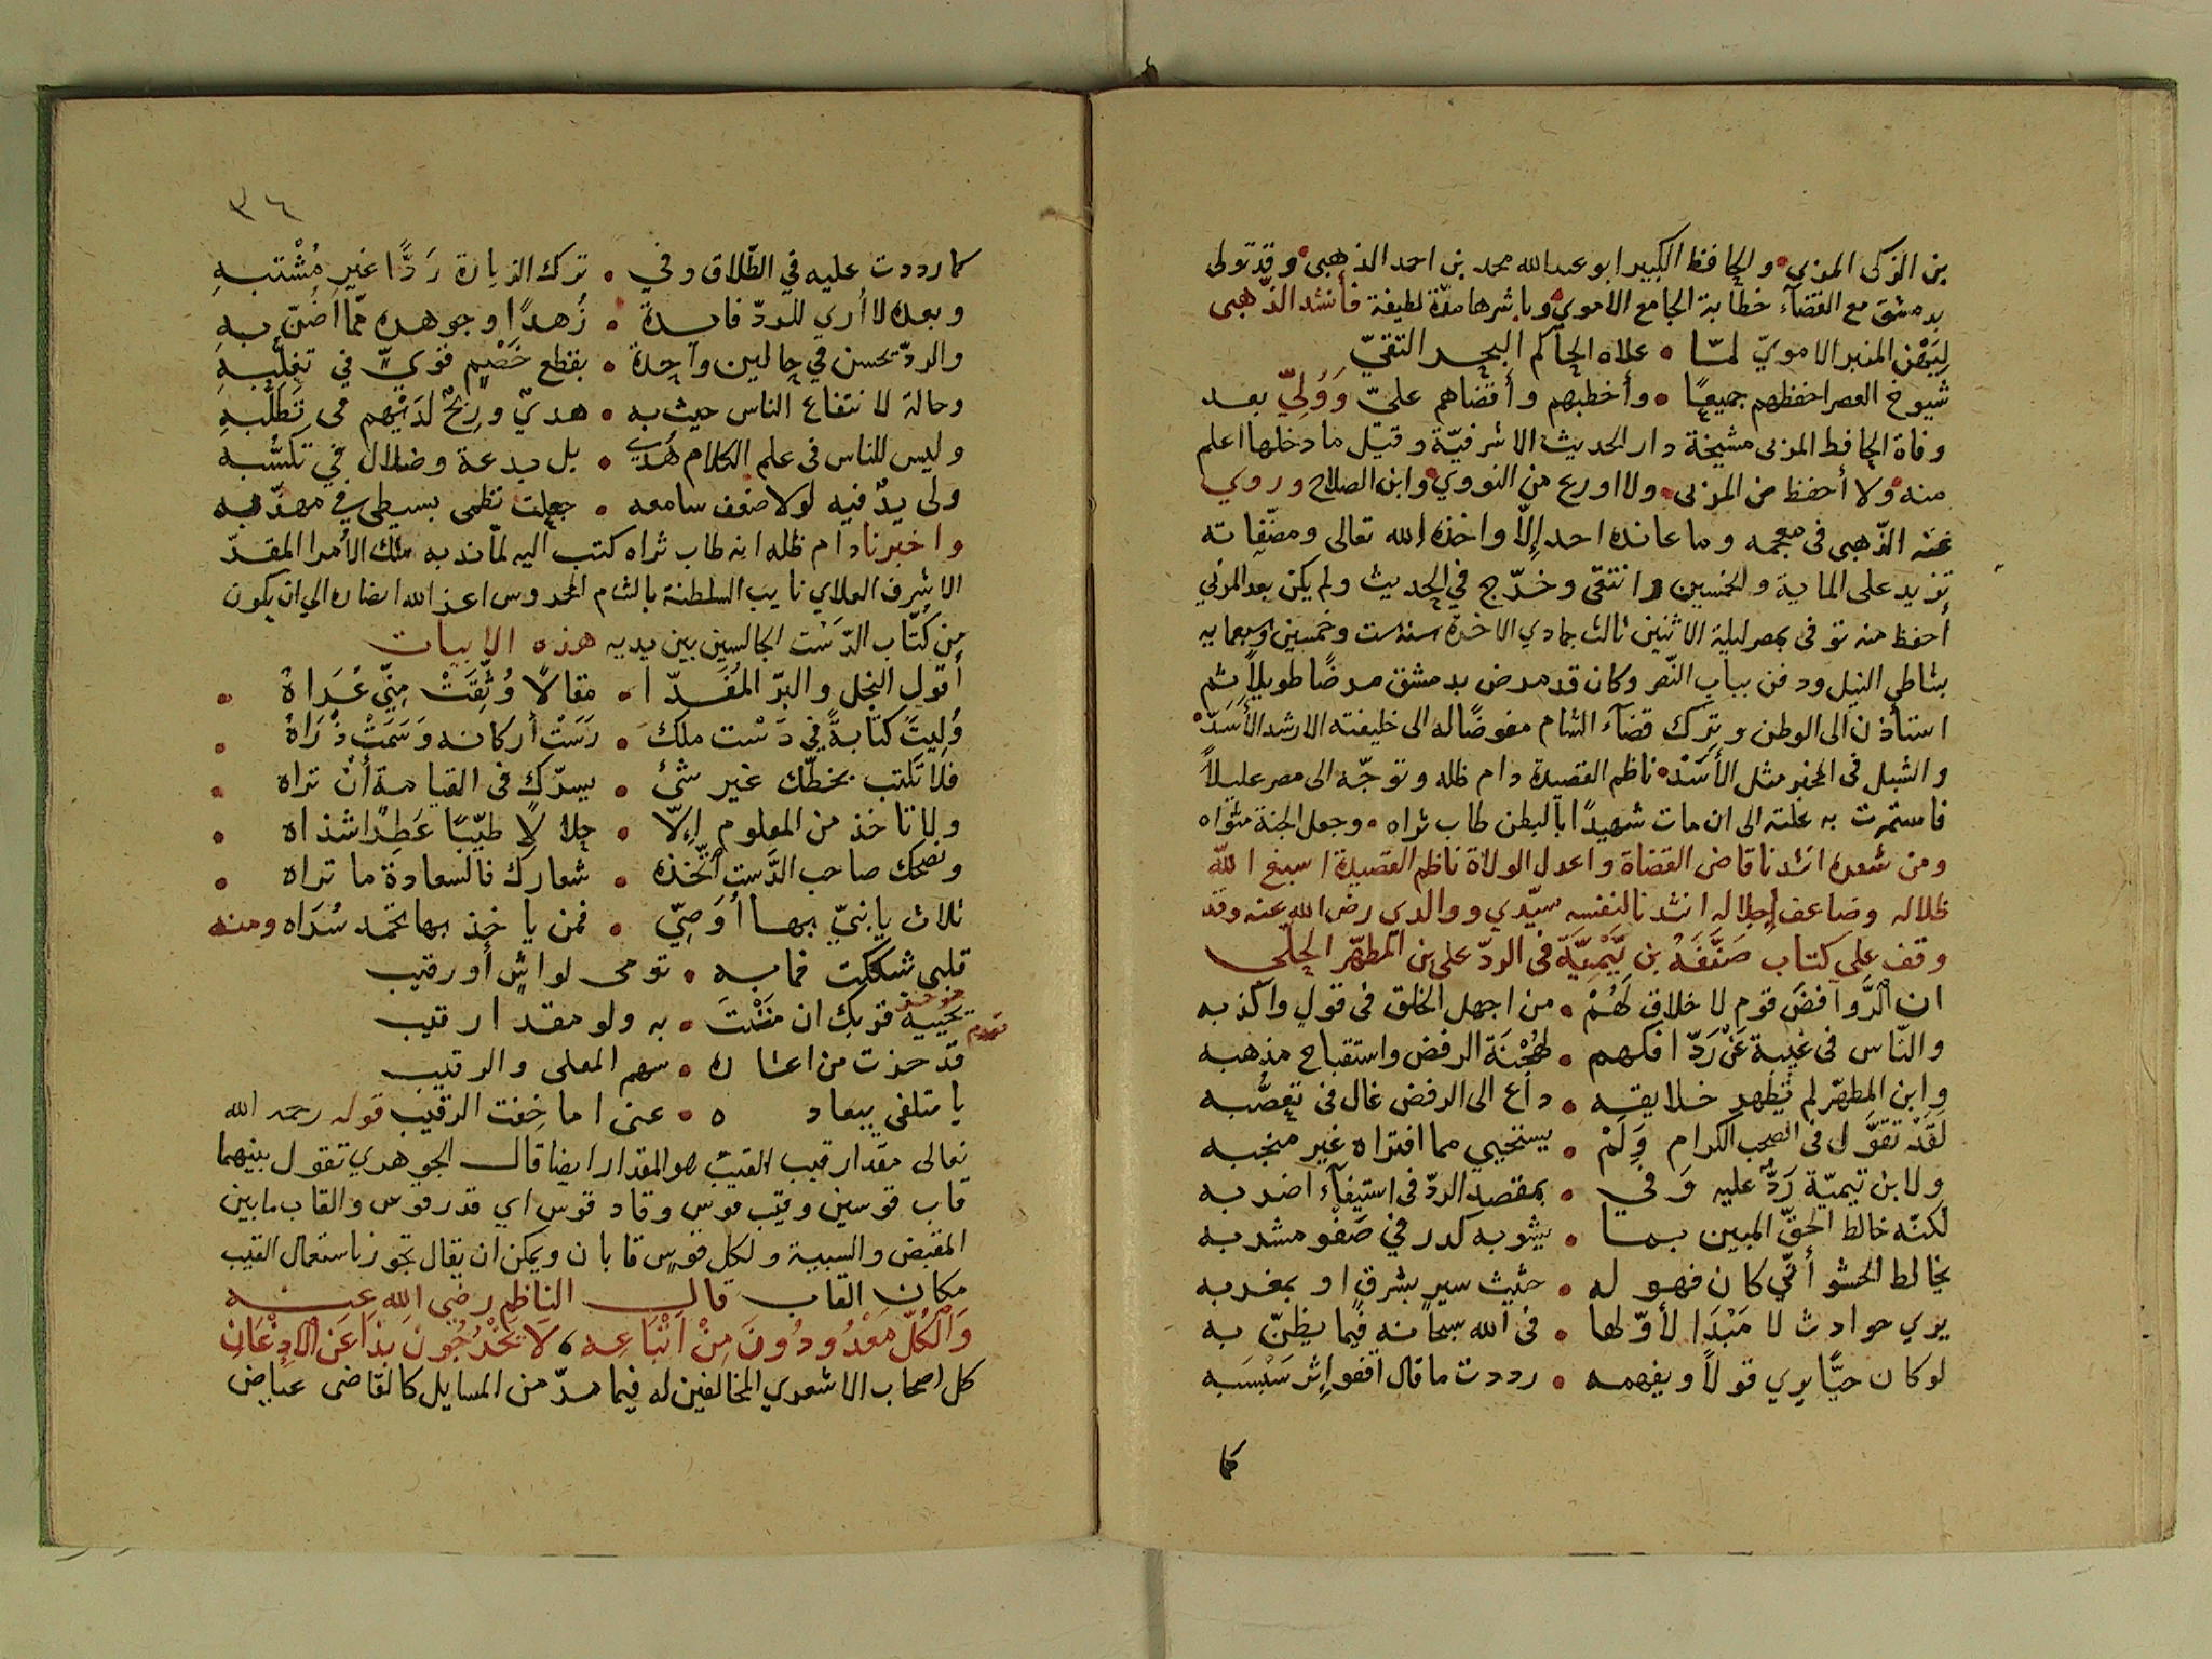 بن الزكى المزي والحافظ الكبير ابو عبد الله محمد بن احمد الذهبى وقد تولى
بدمشق مع القضآء خطابة الجامع الاموي وباشرها مدّة لطيفة فأنشد الذّهبى
لِيَهْن المنبر الامويّ لمّا • علاه الحآكم البحر التقيّ
شيوخ العصر احفظهم جميعًا • وأخطبهم وأقضاهم عليّ وَوُلِيّ بعد
وفاة الحافظ المزى مشيخة دار الحديث الاشرفيّة وقيل ما دخلها اعلم
منه ولا أحفظ من المزى ولا اورع من النووي وابن الصلاح وروي
عنه الذّهبى فى معجمه وما عانده احد إلّا واخذه الله تعالى ومصنّفاته
تزيد على الماية والخمسين وانتقى وخرّج في الحديث ولم يكن بعد المزي
أحفظ منه توفى بمصر ليلة الاثنين ثالث جمادي الاخرة سنة ست وخمسين وسبعمايه
بشاطي النيل ودفن بباب النّصر وكان قد مرض بدمشق مرضًا طويلًا ثم
استأذن الى الوطن وترك قضآء الشام مفوضًا له الى خليفته الارشد الأَسَدّ
والشبل فى المخبر مثل الأَسَدْ ناظم القصيدة دام ظله وتوجّه الى مصر عليلاً
فاستمرت به علته الى ان مات شهيدًا بالبطن طاب ثراه • وجعل الجنة مثواه
ومن شعره انشدنا قاضى القضاة واعدل الولاة ناظم القصيدة اسبغ اللّه
ظلاله وضاعف إجلاله انشدنا لنفسه سيّدي ووالدي رضى الله عنه وقد
وقف على كتاب صَنَّفَهُ بن تَيْمِيَّة فى الردّ على بن المطهّر الحلّى
ان الرَّوافضَ قوم لا خلاق لَهُمْ • من اجهل الخلق فى قول واكذبه
والنّاس فى غنية عَنْ رَدّ افكهم • لهُجْنَة الرفض واستقباح مذهبه
وابن المطهّر لم تطهر خلايقه • داعٍ الى الرفض غال فى تعصّبه
لَقَدْ تقوّل فى الصحب الكرام وَلَمْ • يستحيي مما افتراه غير منجبه
ولابن تيميّة رَدٌّ عليه وَفي • بمقصد الردّ فى استيفآء اضربه
لكنّه خالط الحقّ المبين بما • يشوبه كدر في صَفْو مشربه
يخالط الحشو أنّي كان فهو له • حثيث سير بشرق او بمغربه
يري حوادث لا مَبْدَا لأوّلها • فى الله سبحانه فيما يظنّ به
لو كان حيًّا يري قولاً ويفهمه • رددت ما قال اقفو إثر سَبْسَبه
كما
٣٦
كما رددت عليه في الطّلاق وفي • ترك الزيارة رَدًّا غير مُشْتبهِ
وبعده لا أري للردّ فايدة • زُهدًا وجوهره ممّا اَضنّ بهِ
والردّ يحسن في حالين وآحدة • بقطع خَصْمٍ قويّ في تغلّبهِ
وحالة لانتفاع الناس حيث به • هديّ ورِبحٌ لدَيْهم فى تَطَلّبهِ
وليس للناس فى علم الكلام هُدي • بل بدعة وضلال في تكسّبه
ولى يدٌ فيه لولا ضعف سامعه • جعلت نظمى بسيطى في مهذّبه
واخبرنا دام ظله انه طاب ثراه كتب اليه لما ندبه ملك الأمرا المقرّ
الاشرف العلاي نايب السلطنة بالشام المحروس اعز الله انصاره الي ان يكون
من كتّاب الدَّسْت الجالسين بين يديه هذه الابيات
أقول النجل والبرّ المُفَدّا • مقالًا وُثِّقَتْ مِنّي عُرَاهُ •
وُلِيتَ كتابةً في دَسْت ملك • رَسَتْ أركانه وَسَمَتْ ذُرَاهُ •
فلا تكتب بخطّك غير شئ • يسرّك فى القيامة أنْ تراه •
ولا تاخذ من المعلوم إلّا • حلالًا طيّبًا عَطِرًا شذاه •
ونصحك صاحب الدَّست اتّخذه • شعارك فالسعادة ما تراه •
ثلاث يا بُنيّ بها أُوَصِيّ • فمن ياخذ بها يحمد سُرَاه ومنه
قلبى شككت فما به • تومى لواشٍ أو رقيب
يحييه قربك ان مَنَنْتَ • به ولو مقدار قيب
قد حزت من اعشاره • سهم المعلى والرقيب
يا متلفى ببعاده • عنى اما خِفت الرقيب قوله رحمه الله
تعالى مقدار قيب القيب هو المقدار ايضا قال الجوهري تقول بينهما
قاب قوسين وقيب قوس وقاد قوس اي قدر قوس والقاب ما بين
المقبض والسية ولكل قوس قابان ويمكن ان يقال تجوز باستعمال القيب
مكان القاب قال الناظم رضى الله عنه
وَالْكُلّ مَعْدُودُونَ مِنْ اَتْبَاعِه ، لا يَخْرُجُون بذا عَن الاذْعَانِ
كل اصحاب الاشعري المخالفين له فيما مرّ من المسايل كالقاضى عياض